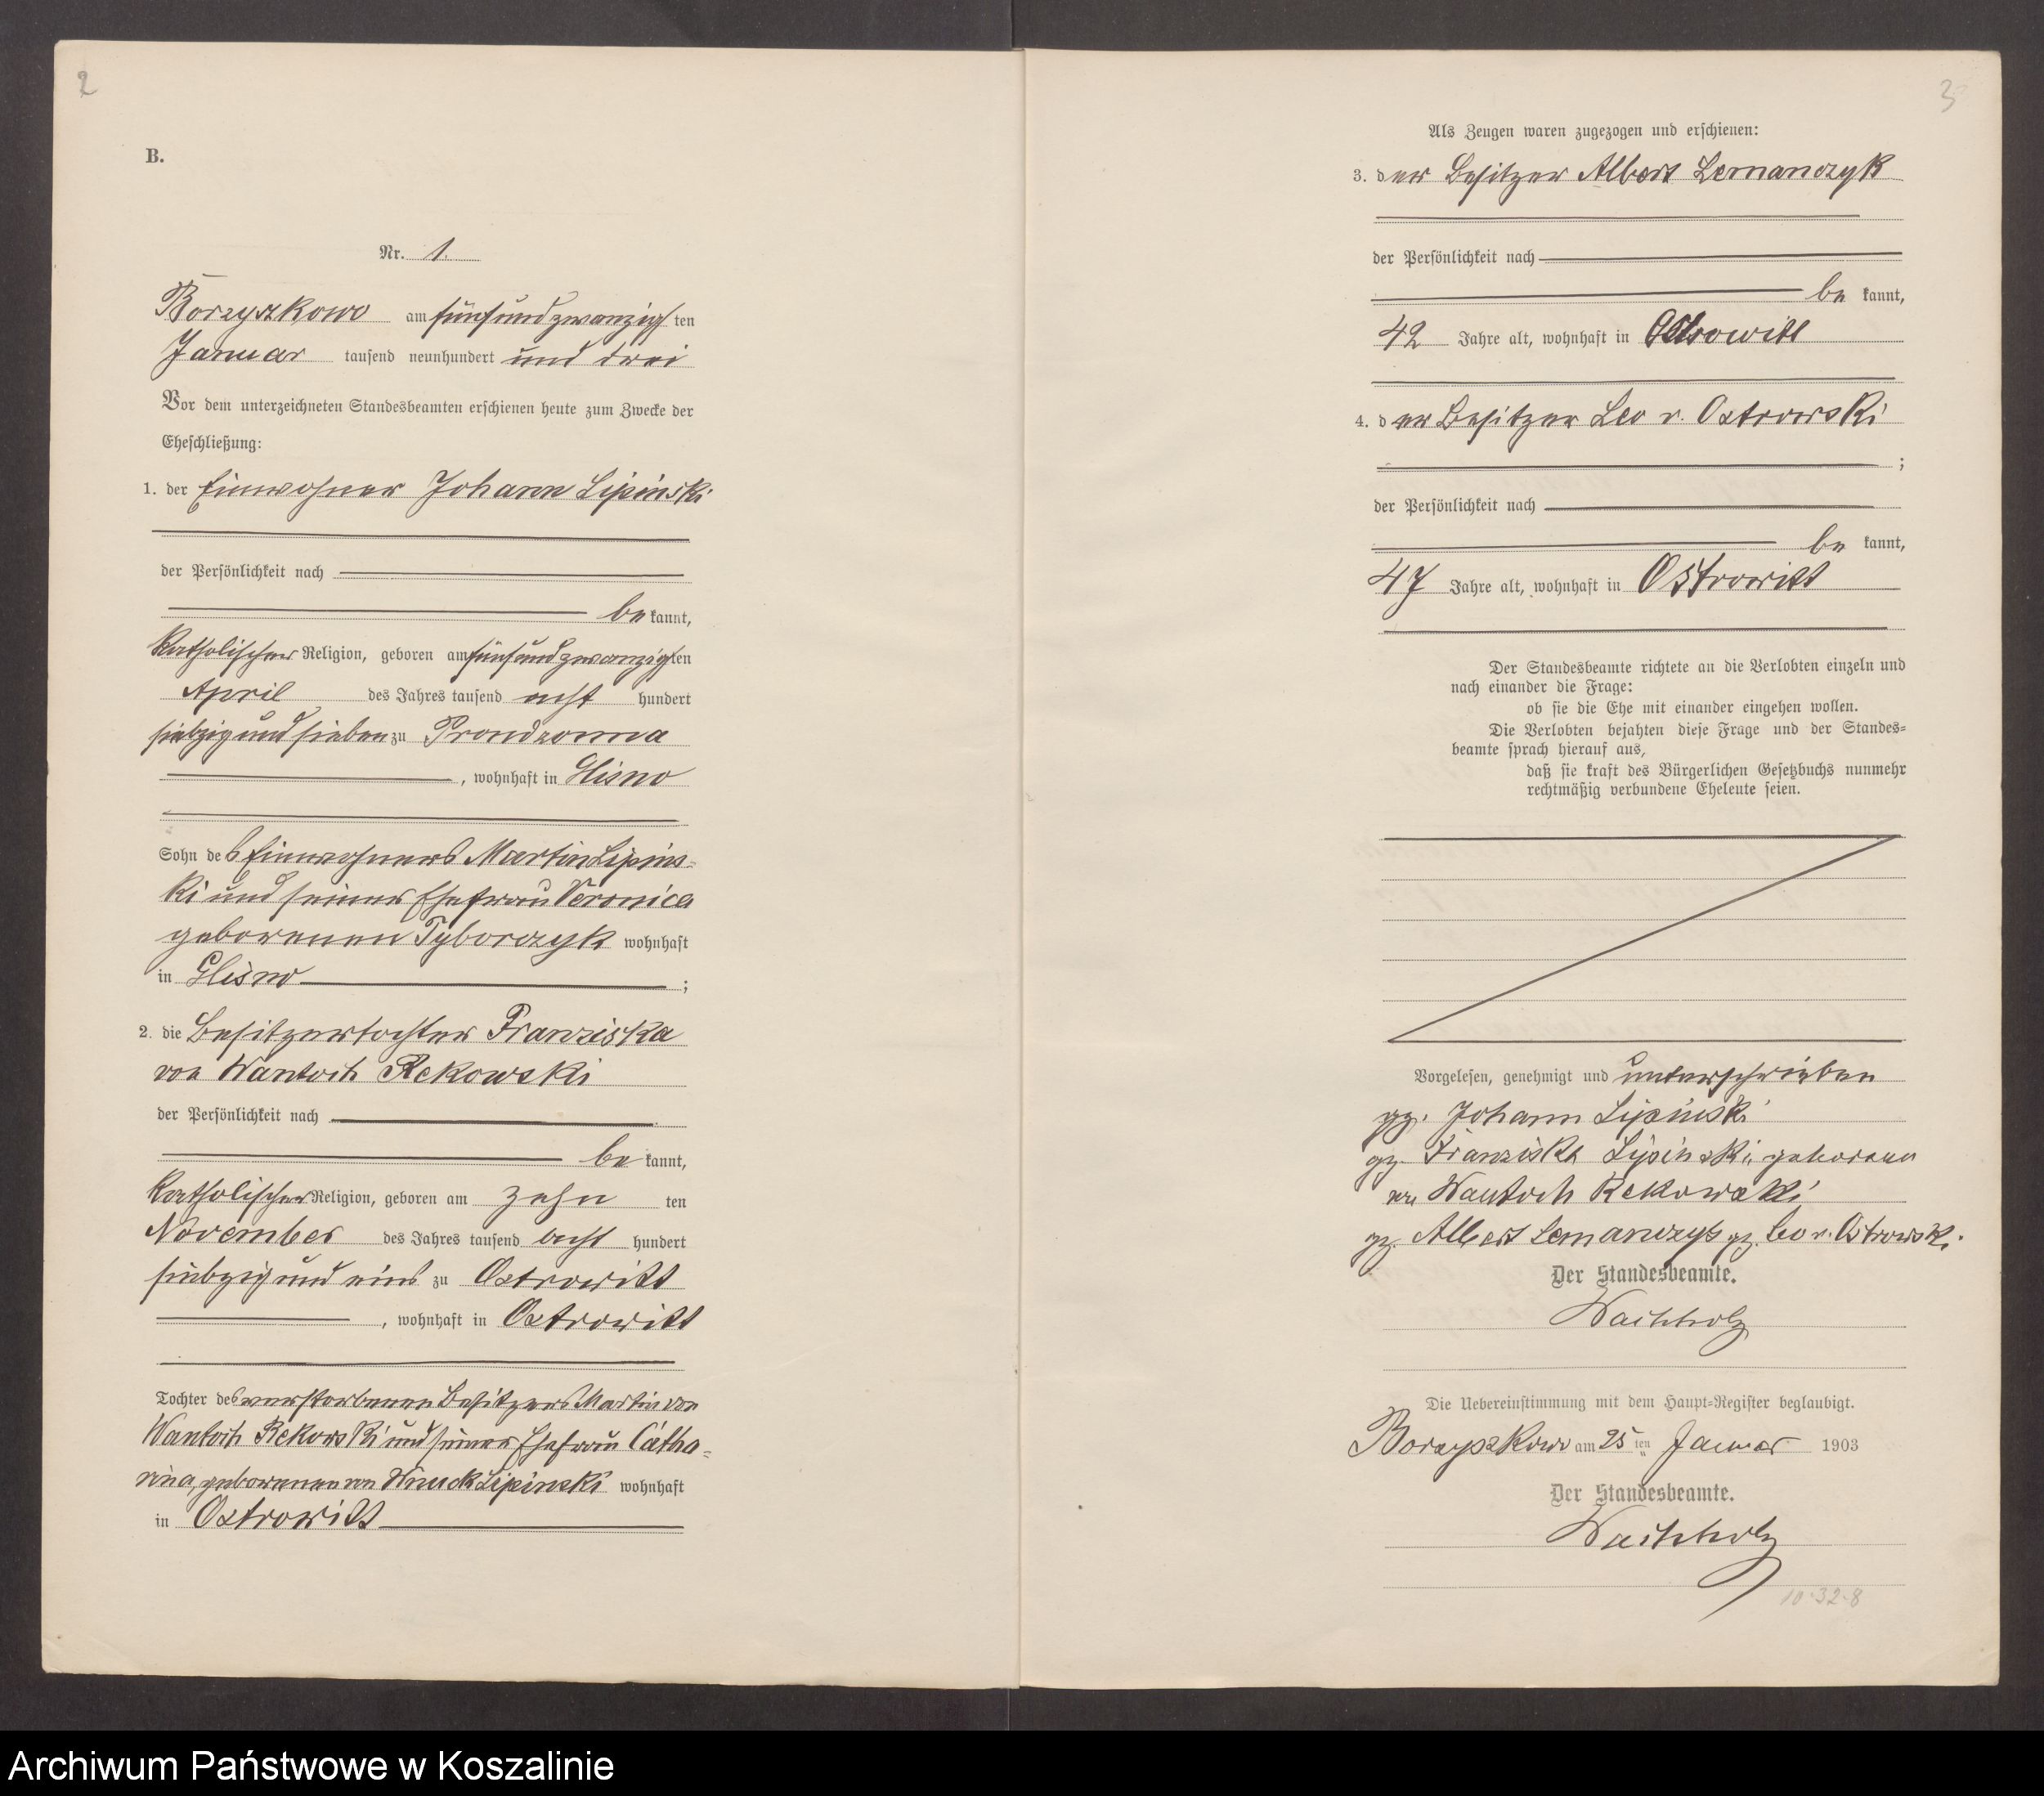 2
B.
Nr. 1.
Borzyszkowo am fünfundzwanzigsten
Januar tausend neunhundert und drei
Vor dem unterzeichneten Standesbeamten erschienen heute zum Zwecke der
Eheschließung:
1. der Einwohner Johann Lipinski
der Persönlichkeit nach
be kannt,
katholischer Religion, geboren am fünfundzwanzigsten
April des Jahres tausend acht hundert
siebzig und sieben zu Prondzonna
, wohnhaft in Glisno
Sohn des Einwohners Martin Lipins-
ki und seiner Ehefrau Veronica
geborenen Tyborczyk wohnhaft
in Glisno ;
2. die Besitzertochter Franziska
von Wantoch Rekowski
der Persönlichkeit nach
be kannt,
katholischer Religion, geboren am zehn ten
November des Jahres tausend acht hundert
siebzig und eins zu Ostrowitt
, wohnhaft in Ostrowitt
Tochter des verstorbenen Besitzers Martin von
Wantoch Rekowski und seiner Ehefrau Catha-
rina, geborenen von Wnuck Lipinski wohnhaft
in Ostrowitt
3
Als Zeugen waren zugezogen und erschienen:
3. der Besitzer Albert Lemanczyk
der Persönlichkeit nach
be kannt,
42 Jahre alt, wohnhaft in Ostrowitt
4. der Besitzer Leo v. Ostrowski
;
der Persönlichkeit nach
be kannt,
47 Jahre alt, wohnhaft in Ostrowitt
Der Standesbeamte richtete an die Verlobten einzeln und
nach einander die Frage:
ob sie die Ehe mit einander eingehen wollen.
Die Verlobten bejahten diese Frage und der Standes-
beamte sprach hierauf aus,
daß sie kraft des Bürgerlichen Gesetzbuchs nunmehr
rechtmäßig verbundene Eheleute seien.
Vorgelesen, genehmigt und unterschrieben
gz. Johann Lipinski
gz. Franziska Lipinski, geborene
von Wantoch Rekowski
gz. Albert Lemanczyk gz. Leo v. Ostrowski.
Der Standesbeamte.
Wachholz
Die Uebereinstimmung mit dem Haupt-Register beglaubigt.
Borzyszkowo am 25 ten Januar 1903
Der Standesbeamte.
Wachholz
10-32-8
Archiwum Państwowe w Koszalinie